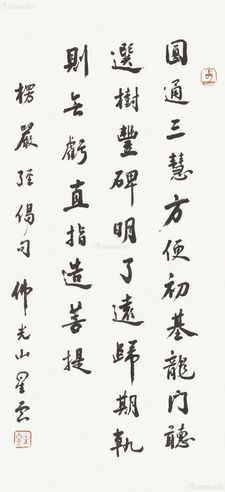 圓通三慧方便初基龍門聽
選樹豐碑明了遠歸期軌
則無虧直指造菩提
楞嚴經偈句 佛光山星雲